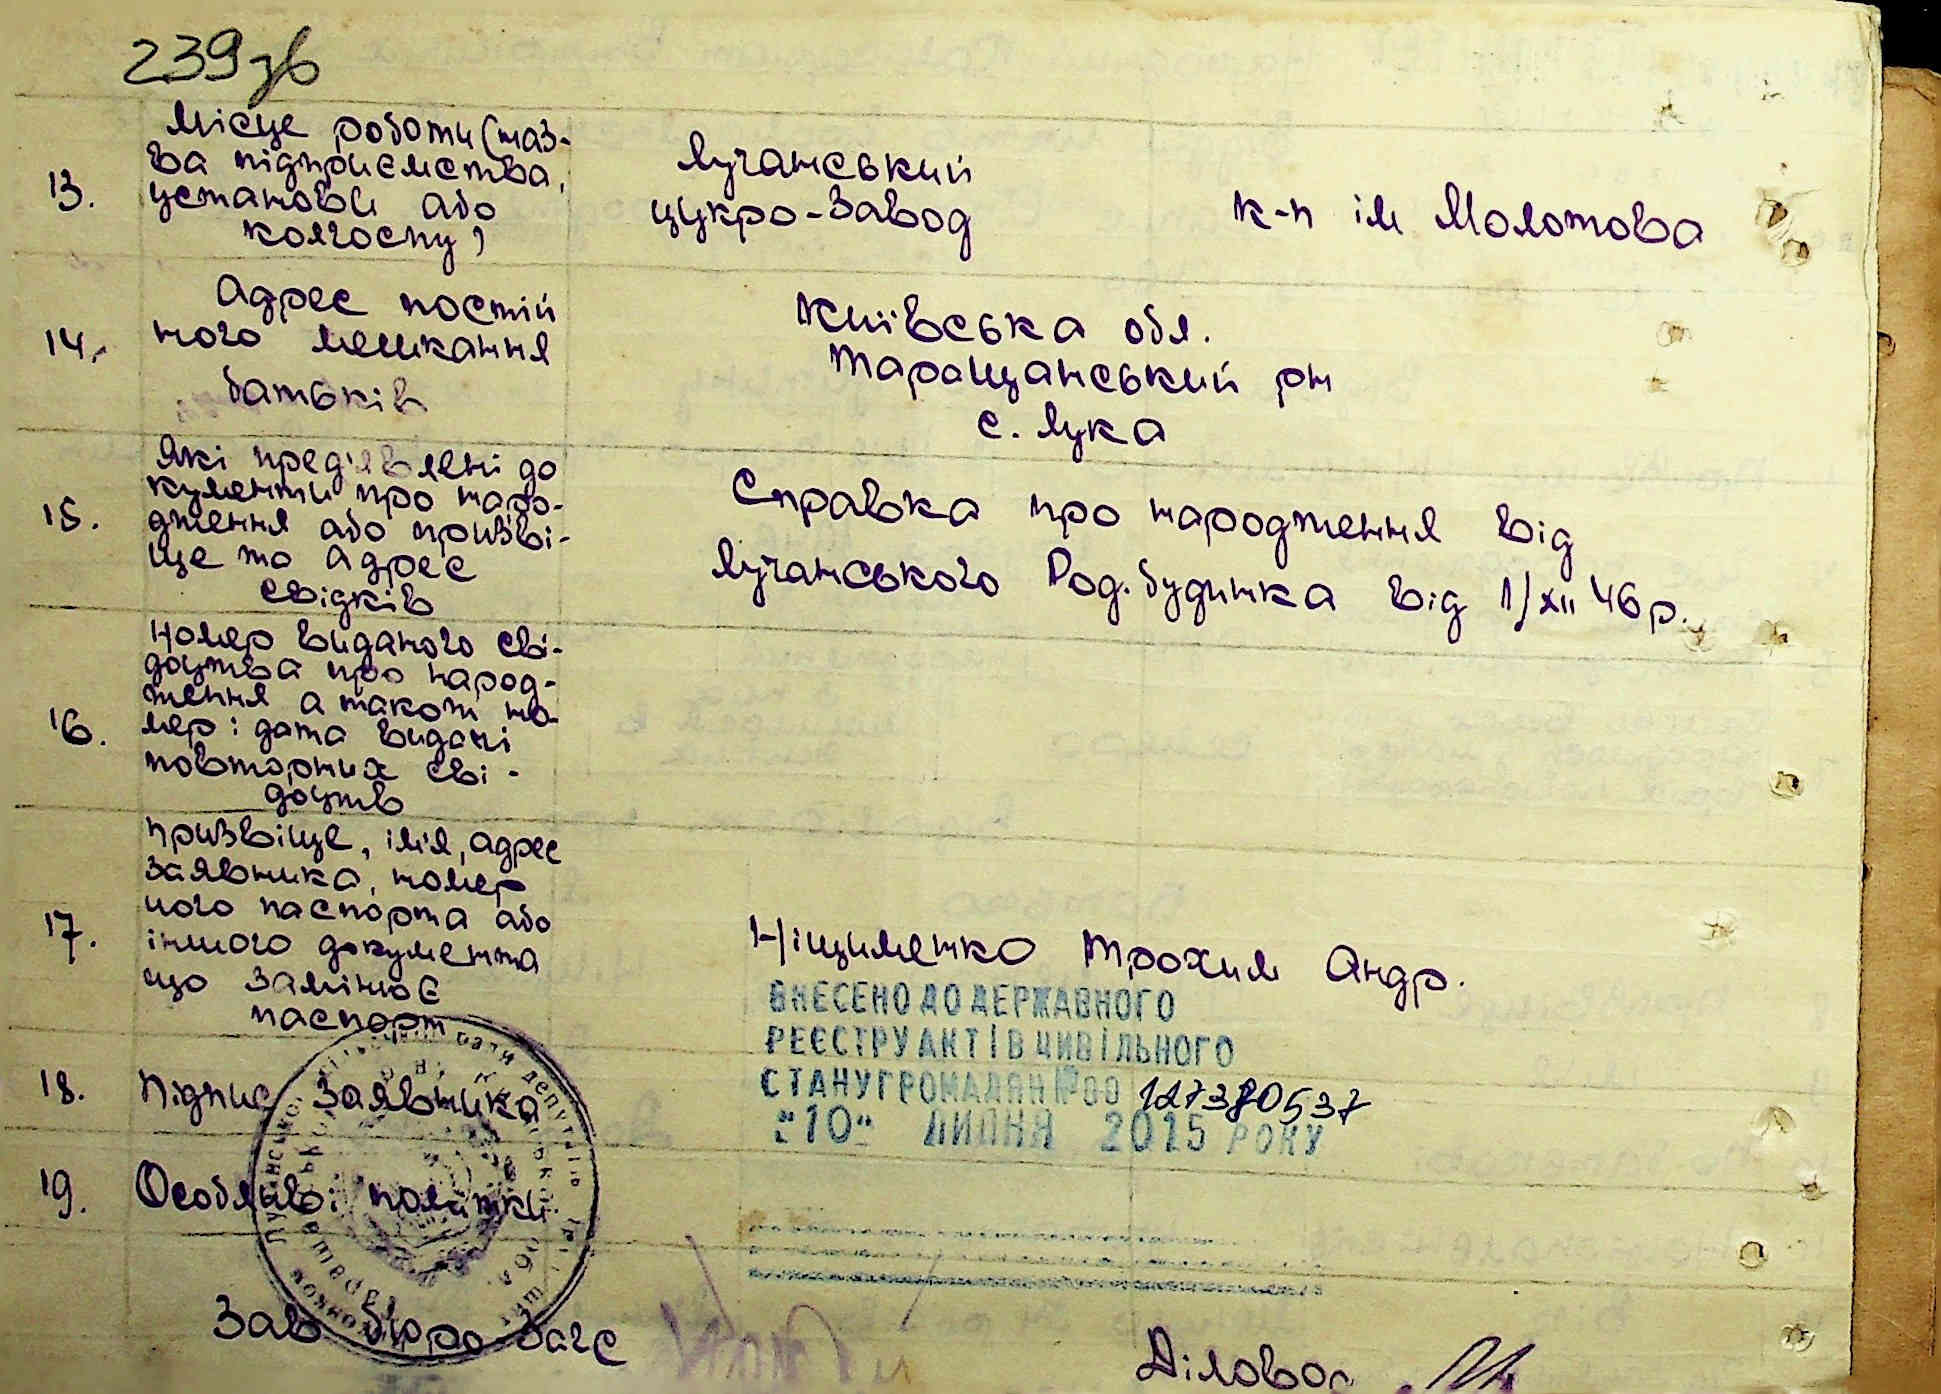 239зв
13.
Місце роботи (наз-
ва підприємства,
установи або
колгоспу)
Лучанський
цукро-завод
к-п ім Молотова
14.
Адрес постій
ного мешкання
батьків
Київська обл.
Таращанський рн
с. Лука
15.
Які пред'явлені до
кументи про наро-
дження або призві-
ще та адрес
свідків
Справка про народження від
Лучанського Род. будинка від 1/XII 46 р.
16.
Номер виданого сві-
доцтва про народ-
ження а також но-
мер і дата видачі
повторних сві-
доцтв
17.
Призвіще, ім'я, адрес
заявника, номер
його паспорта або
іншого документа
що замінює
паспорт
Ніщименко Трохим Андр.
ВНЕСЕНО ДО ДЕРЖАВНОГО
РЕЄСТРУ АКТІВ ЦИВІЛЬНОГО
СТАНУ ГРОМАДЯН № 00 127380537
"10" ЛИПНЯ 2015 РОКУ
18.
Підпис заявника
19.
Особливі помітки
ради депутатів
обл.
Зав бюро Загс
Діловод